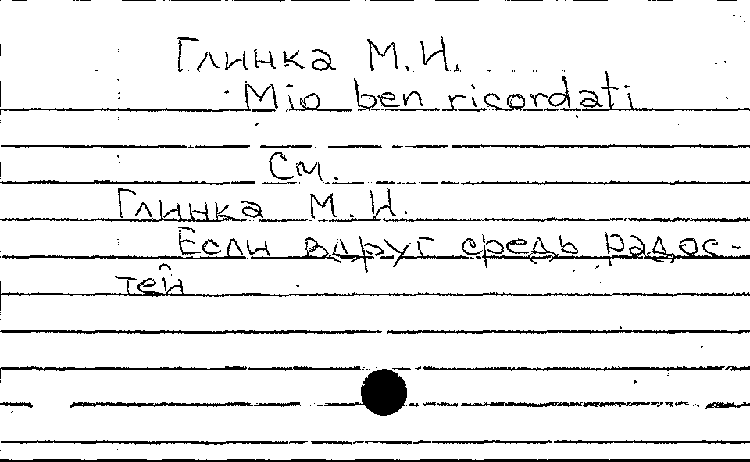 Глинка М.И.
Mio ben ricordati
См.
Глинка М.И.
Если вдруг средь радос-
тей